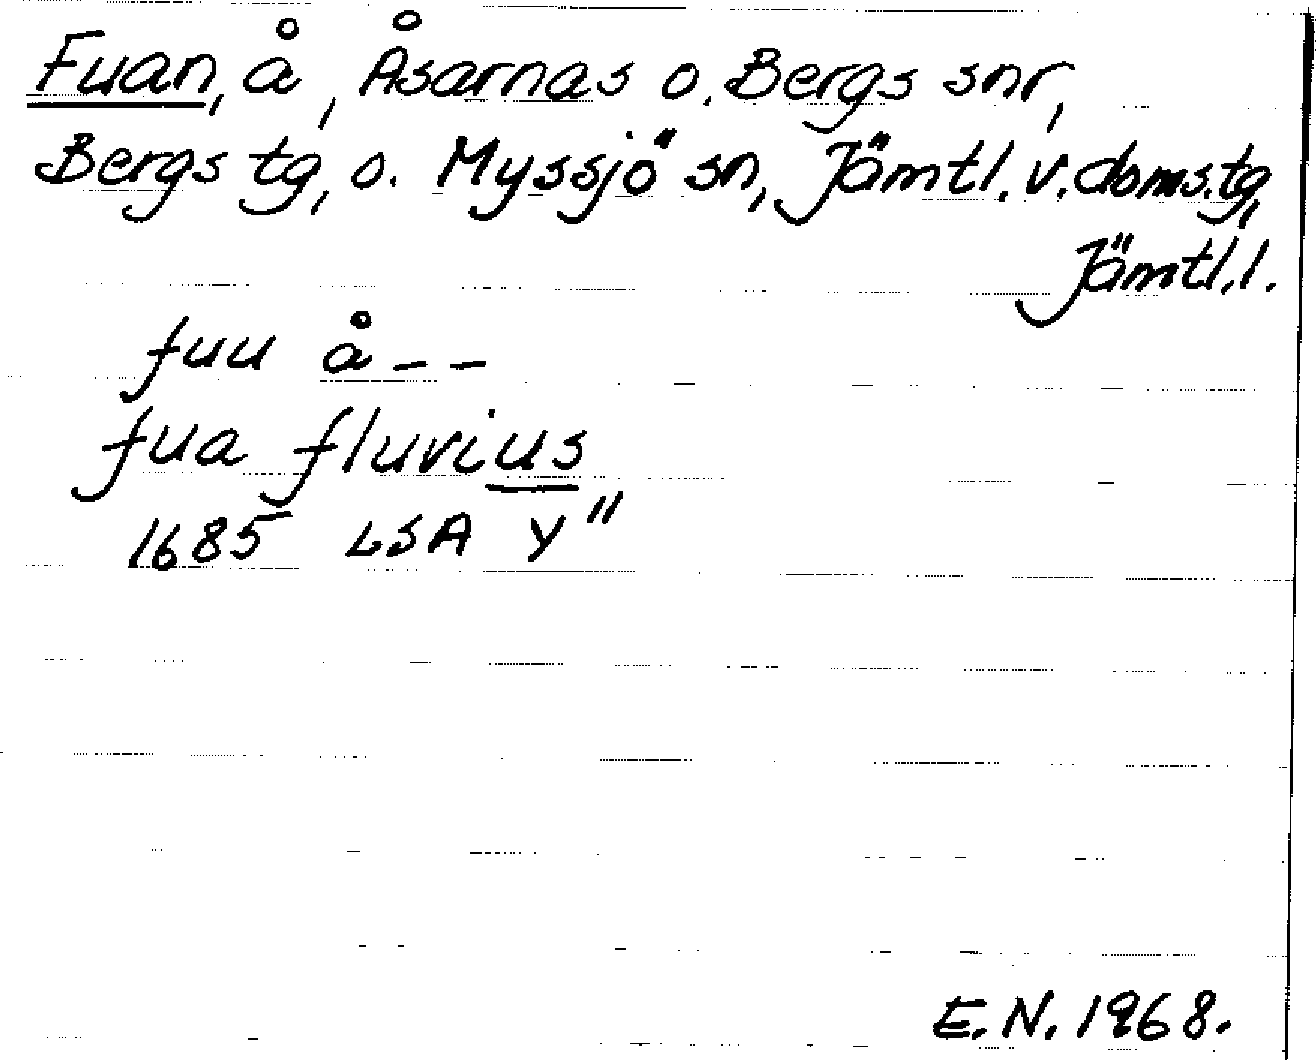 Fuan, å, Åsarnas o. Bergs snr,
Bergs tg, o. Myssjö sn, Jämtl. v. doms.tg,
Jämtl.l.
fuu å - -
fua fluvius
1685 LSA Y"
E.N. 1968.